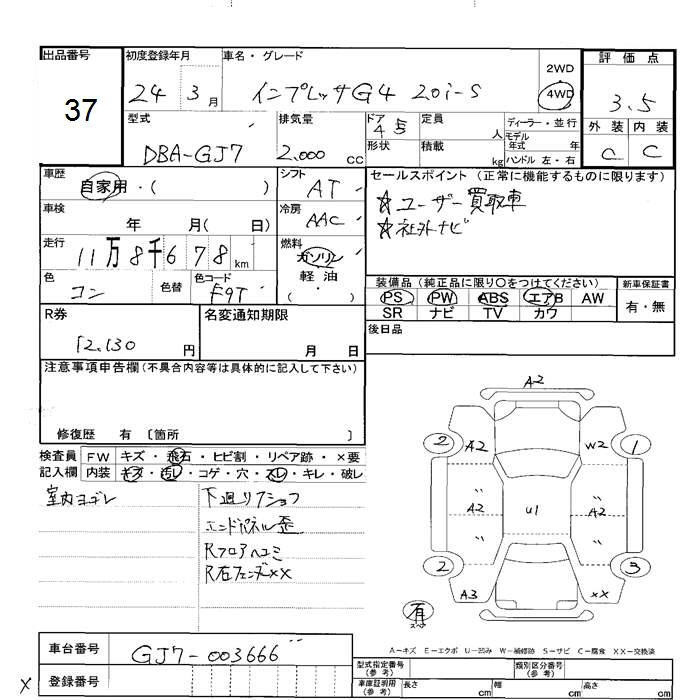 出品番号
37
初度登録年月
24 3 月
車名・グレード
インプレッサG4 2.0i-S
2WD
4WD
評価点
3.5
外装 内装
C C
型式
DBA-GJ7
排気量
2,000 cc
ドア
4
形状
定員
人
積載
kg
ディーラー・並行
モデル
年式 年
ハンドル 左・右
車歴
自家用・( )
シフト
AT
車検
年 月( 日)
冷房
AAC
走行
11万8千678 km
燃料
ガソリン
軽油
( ・ )
色
コン
色替
色コード
セールスポイント (正常に機能するものに限ります)
☆ユーザー買取車
☆社外ナビ
装備品(純正品に限り〇をつけてください)
新車保証書
PS PW ABS エアB AW
SR ナビ TV カワ
有・無
後日品
R券
12,130 円
名変通知期限
月 日
注意事項申告欄(不具合内容等は具体的に記入して下さい)
修復歴 有 〔箇所 〕
検査員
記入欄
FW キズ・飛石・ヒビ割・リペア跡・×要
内装 キズ・汚レ・コゲ・穴・スレ・キレ・破レ
室内ヨゴレ
下廻りフショク
エンドパネル歪
Rフロアヘコミ
R右フェンダXX
A2
2 A2 W2 1
A2 U1 A2
2 3
A3 XX
有
スペア
A-キズ E-エクボ U-凹み W-補修跡 S-サビ C-腐食 XX-交換済
車台番号
GJ7-003666
×
登録番号
型式指定番号
(参考)
類別区分番号
(参考)
車庫証明用
(参考)
長さ cm
幅 cm
高さ cm